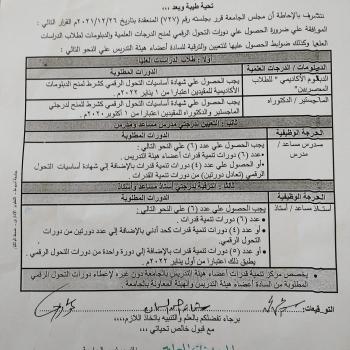 تحية طيبة وبعد
نتشرف بالإحاطة أن مجلس الجامعة قرر بجلسته رقم (٧٢٧) المنعقدة بتاريخ ٢٠٢١/١٢/٢٦م القرار التالي:
الموافقة على ضرورة الحصول على دورات التحول الرقمي لمنح الدرجات العلمية والدبلومات لطلاب الدراسات
العليا وكذلك ضوابط الحصول عليها للتعيين والترقية للسادة أعضاء هيئة التدريس علي النحو التالي:
أولا: طلاب الدراسات العليا
الدبلومات / الدرجات العلمية
الدورات المطلوبة
الدبلوم الأكاديمي "للطلاب المصريين"
يجب الحصول علي شهادة أساسيات التحول الرقمي كشرط لمنح الدبلومات
الأكاديمية للمقيدين اعتبارا من ١ يناير ٢٠٢٢م.
الماجستير / الدكتوراه
يجب الحصول علي شهادة أساسيات التحول الرقمي كشرط للمنح لدرجتي
الماجستير والدكتوراه للمقيدين اعتبارا من ١ أكتوبر ٢٠٢٠م.
ثانيا: التعيين بدرجتي مدرس مساعد ومدرس
الدرجة الوظيفية
الدورات المطلوبة
مدرس مساعد / مدرس
يجب الحصول علي عدد (٦) علي النحو التالي:
عدد (٦) دورات تنمية قدرات أعضاء هيئة التدريس.
أو الحصول علي عدد (٤) دورات تنمية قدرات بالإضافة إلي شهادة أساسيات التحول
الرقمي (تعادل دورتين) من دورات تنمية القدرات.
ثالثا: الترقية بدرجتي أستاذ مساعد وأستاذ
الدرجة الوظيفية
الدورات المطلوبة
أستاذ مساعد / أستاذ
يجب الحصول علي عدد (٦) علي النحو التالي:
عدد (٦) دورات تنمية قدرات.
أو عدد (٤) دورات تنمية قدرات كحد أدني بالإضافة إلي عدد دورتين من دورات
التحول الرقمي.
أو عدد (٥) دورات تنمية قدرات بالإضافة إلي دورة واحدة من دورات التحول الرقمي
يطبق ذلك اعتبارا من أول يناير ٢٠٢٢م.
يخصص مركز تنمية قدرات أعضاء هيئة التدريس بالجامعة دون غيره لإعطاء دورات التحول الرقمي
المطلوبة من السادة أعضاء هيئة التدريس والهيئة المعاونة بالجامعة
التوقيعات:
برجاء تفضلكم بالعلم والتنبيه باتخاذ اللازم،،،،
مع قبول خالص تحياتي ،،،